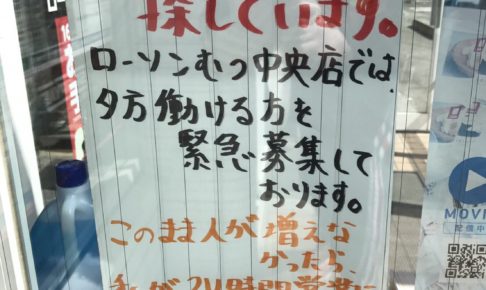 探しています。
ローソンむつ中央店では、
夕方働ける方を
緊急募集して
おります。
このまま人が増えな
かったら、
私が24時間営業に
MOVI
配信中